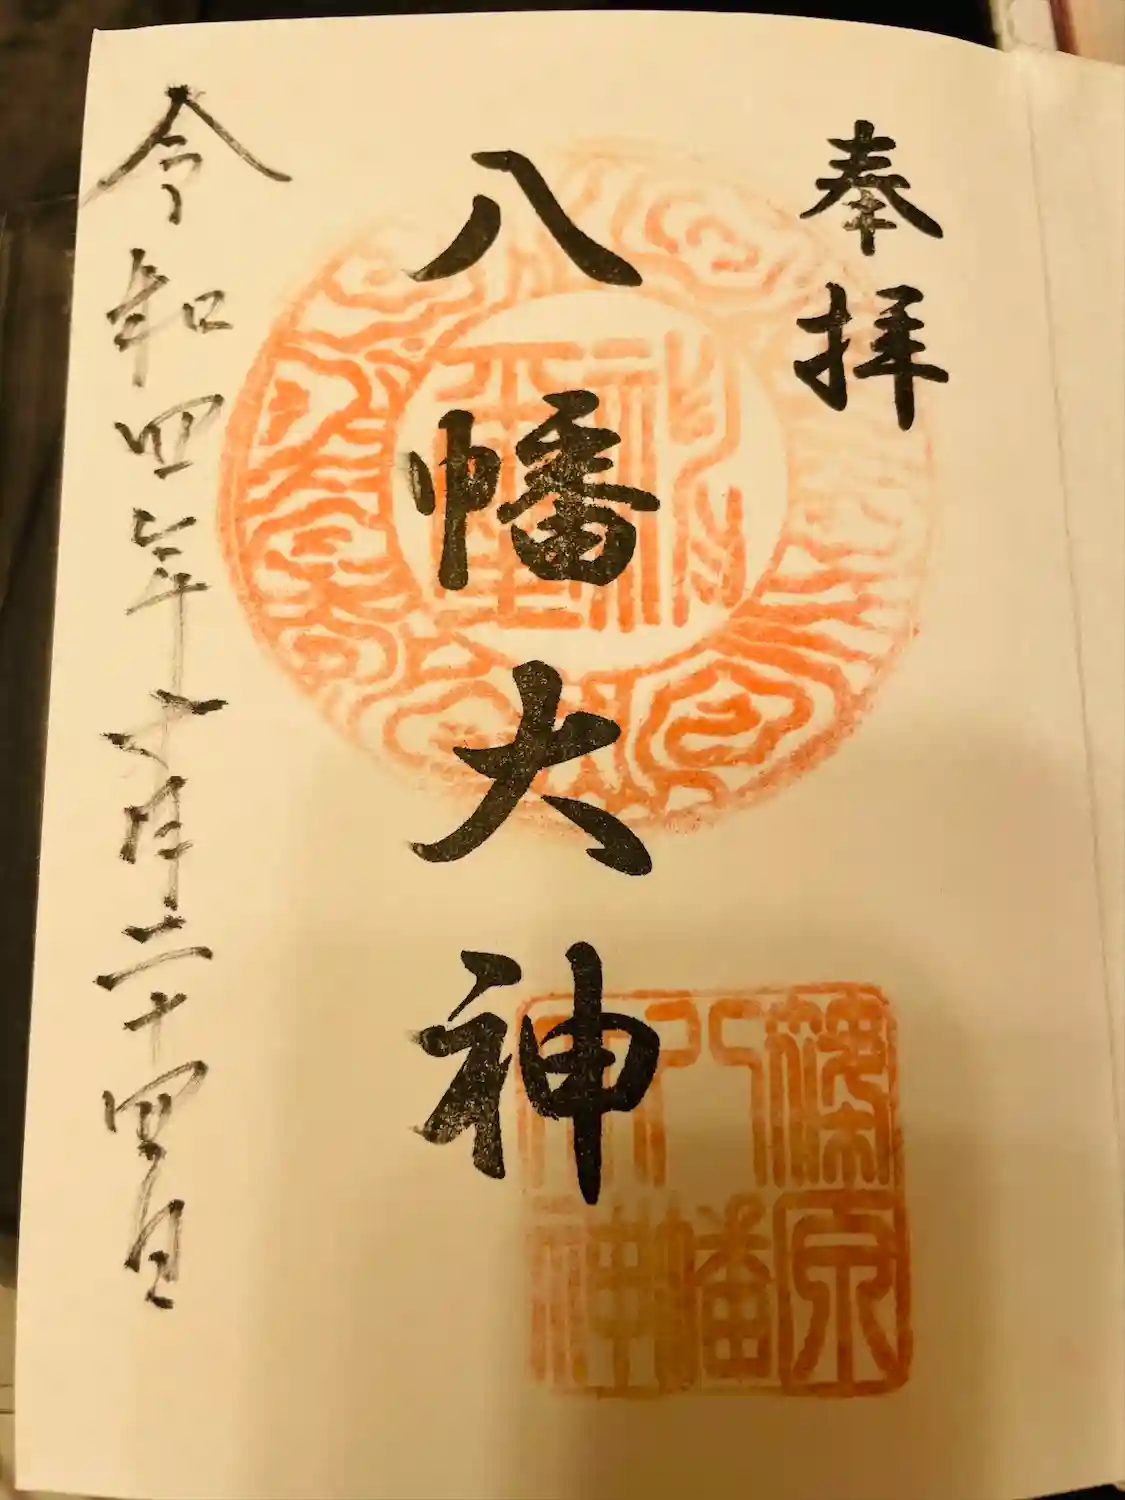 奉拝
八幡大神
令和四年十月二十四日